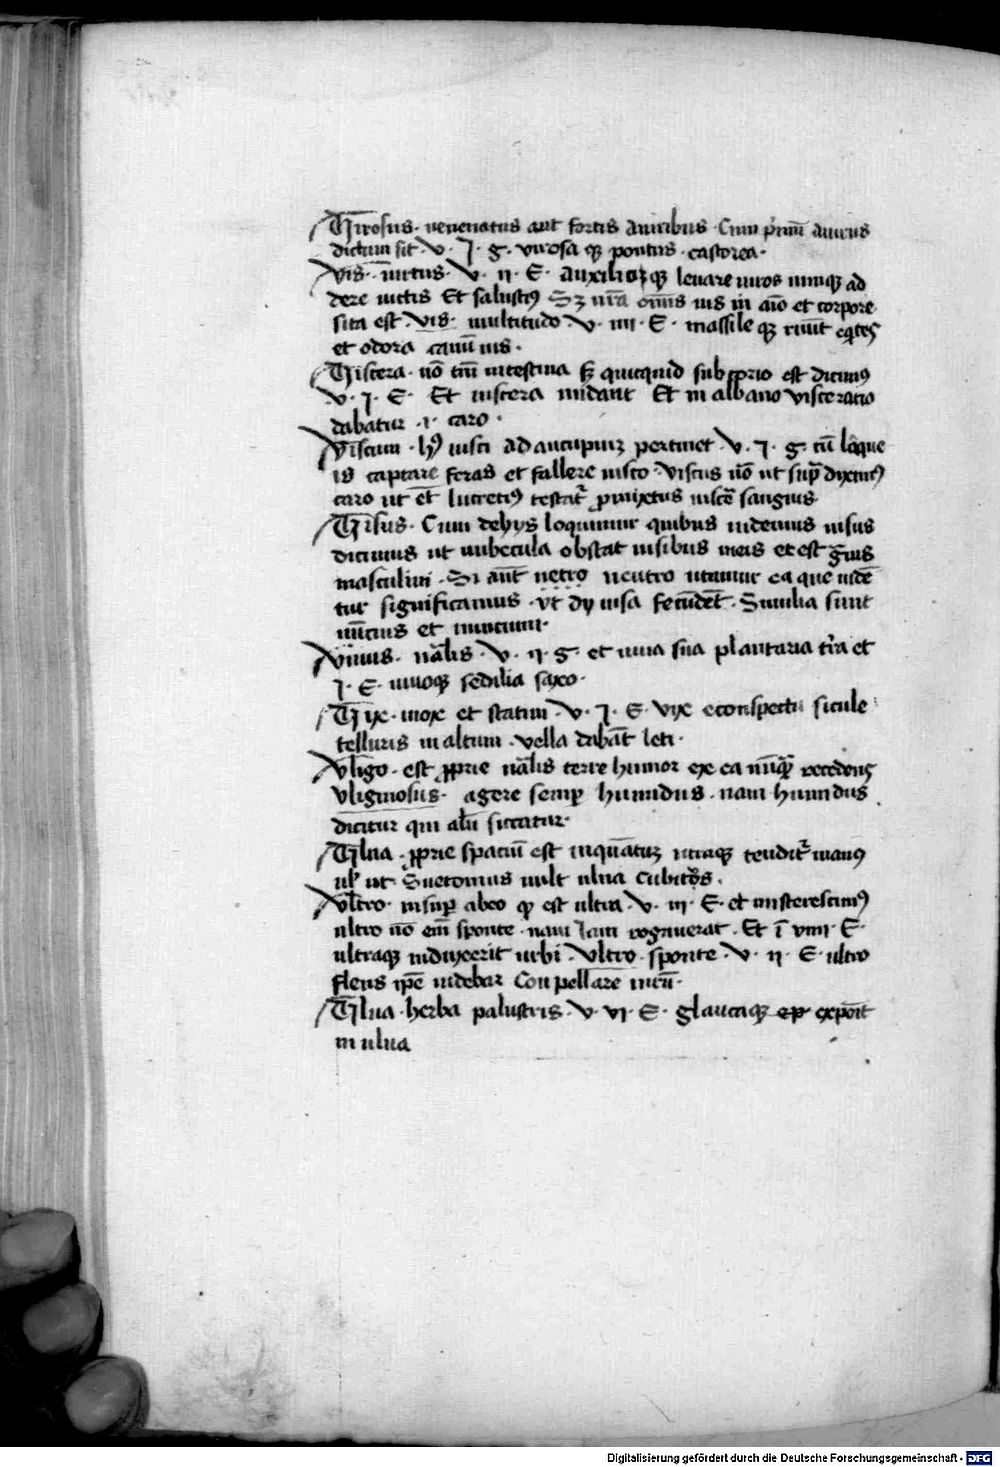 Virosus · venenatus aut fortis a viribus · Cum pͥmū a virus
dictum sit · v · J · g · virosa qȝ pontus · castorea ·
Vis · v̄irtus · v · ij · E · auxilioqȝ levare viros vimqȝ ad
dere victis Et salustiꝰ Sȝ nr̄a om̄is vis in aīo et corpore
sita est · vis · multitudo · v · iiij · E · massile qȝ ruūt eq̄tes
et odora canū vis ·
Viscera · nō tm̄ intestina sȝ quicquid sub est dicimꝰ
v · j · E · Et viscera nudant Et in albano visceratio
dabatur · i · caro ·
Viscum · hꝰ visci ad aucupiuȝ pertinet · v · J · g · tū laque
is captare feras et fallere visco · viscus nō ut supͣ diximꝰ
caro ut et̄ lucretiꝰ testat᷑ ꝓmixtus viscē sanguis
Visus · Cum de hys loquimur quibus videmus visus
dicimus ut nubecula obstat visibus meis et est gn̄is
masculini · Si aut̄ netro neutro utimur ea que vidē
tur significamus · vt dy visa secūdet̄ · Similia sunt
nūcius et nuncium ·
Vivus · nāl̄is · v · ij · g · et viva sua plantaria t̄ra et
j · E · vivoqȝ sedilia saxo ·
Vix · mox et statim · v · J · E · Vix e conspectu sicule
telluris in altum · vella dabāt leti ·
Vligo · est ꝓprie nāl̄is terre humor ex ea nūqͣꝫ recedens
Vliginosus · agere semꝑ humidus · nam humidus
dicitur qui al̄n̄ siccatur ·
Vlna · ꝓprie spaciū est inquātuȝ utraqȝ tendit᷑ manꝰ
ul̄ ut Suetonius vult ulna cubitꝰ es ·
Vltro · insuꝑ ab eo ꝙ est ultra · v · iij · E · et miserescimꝰ
ultro nō em̄ sponte · nam Jam rogaverat · Et ī viiij · E ·
ultraqȝ induxerit urbi · Vltro · sponte · v · ij · E · ultro
flens ip̄e videbar Compellare virū ·
Vlva · herba palustris · v · vi · E · glaucaqȝ exponit
in ulva
Digitalisierung gefördert durch die Deutsche Forschungsgemeinschaft - DFG